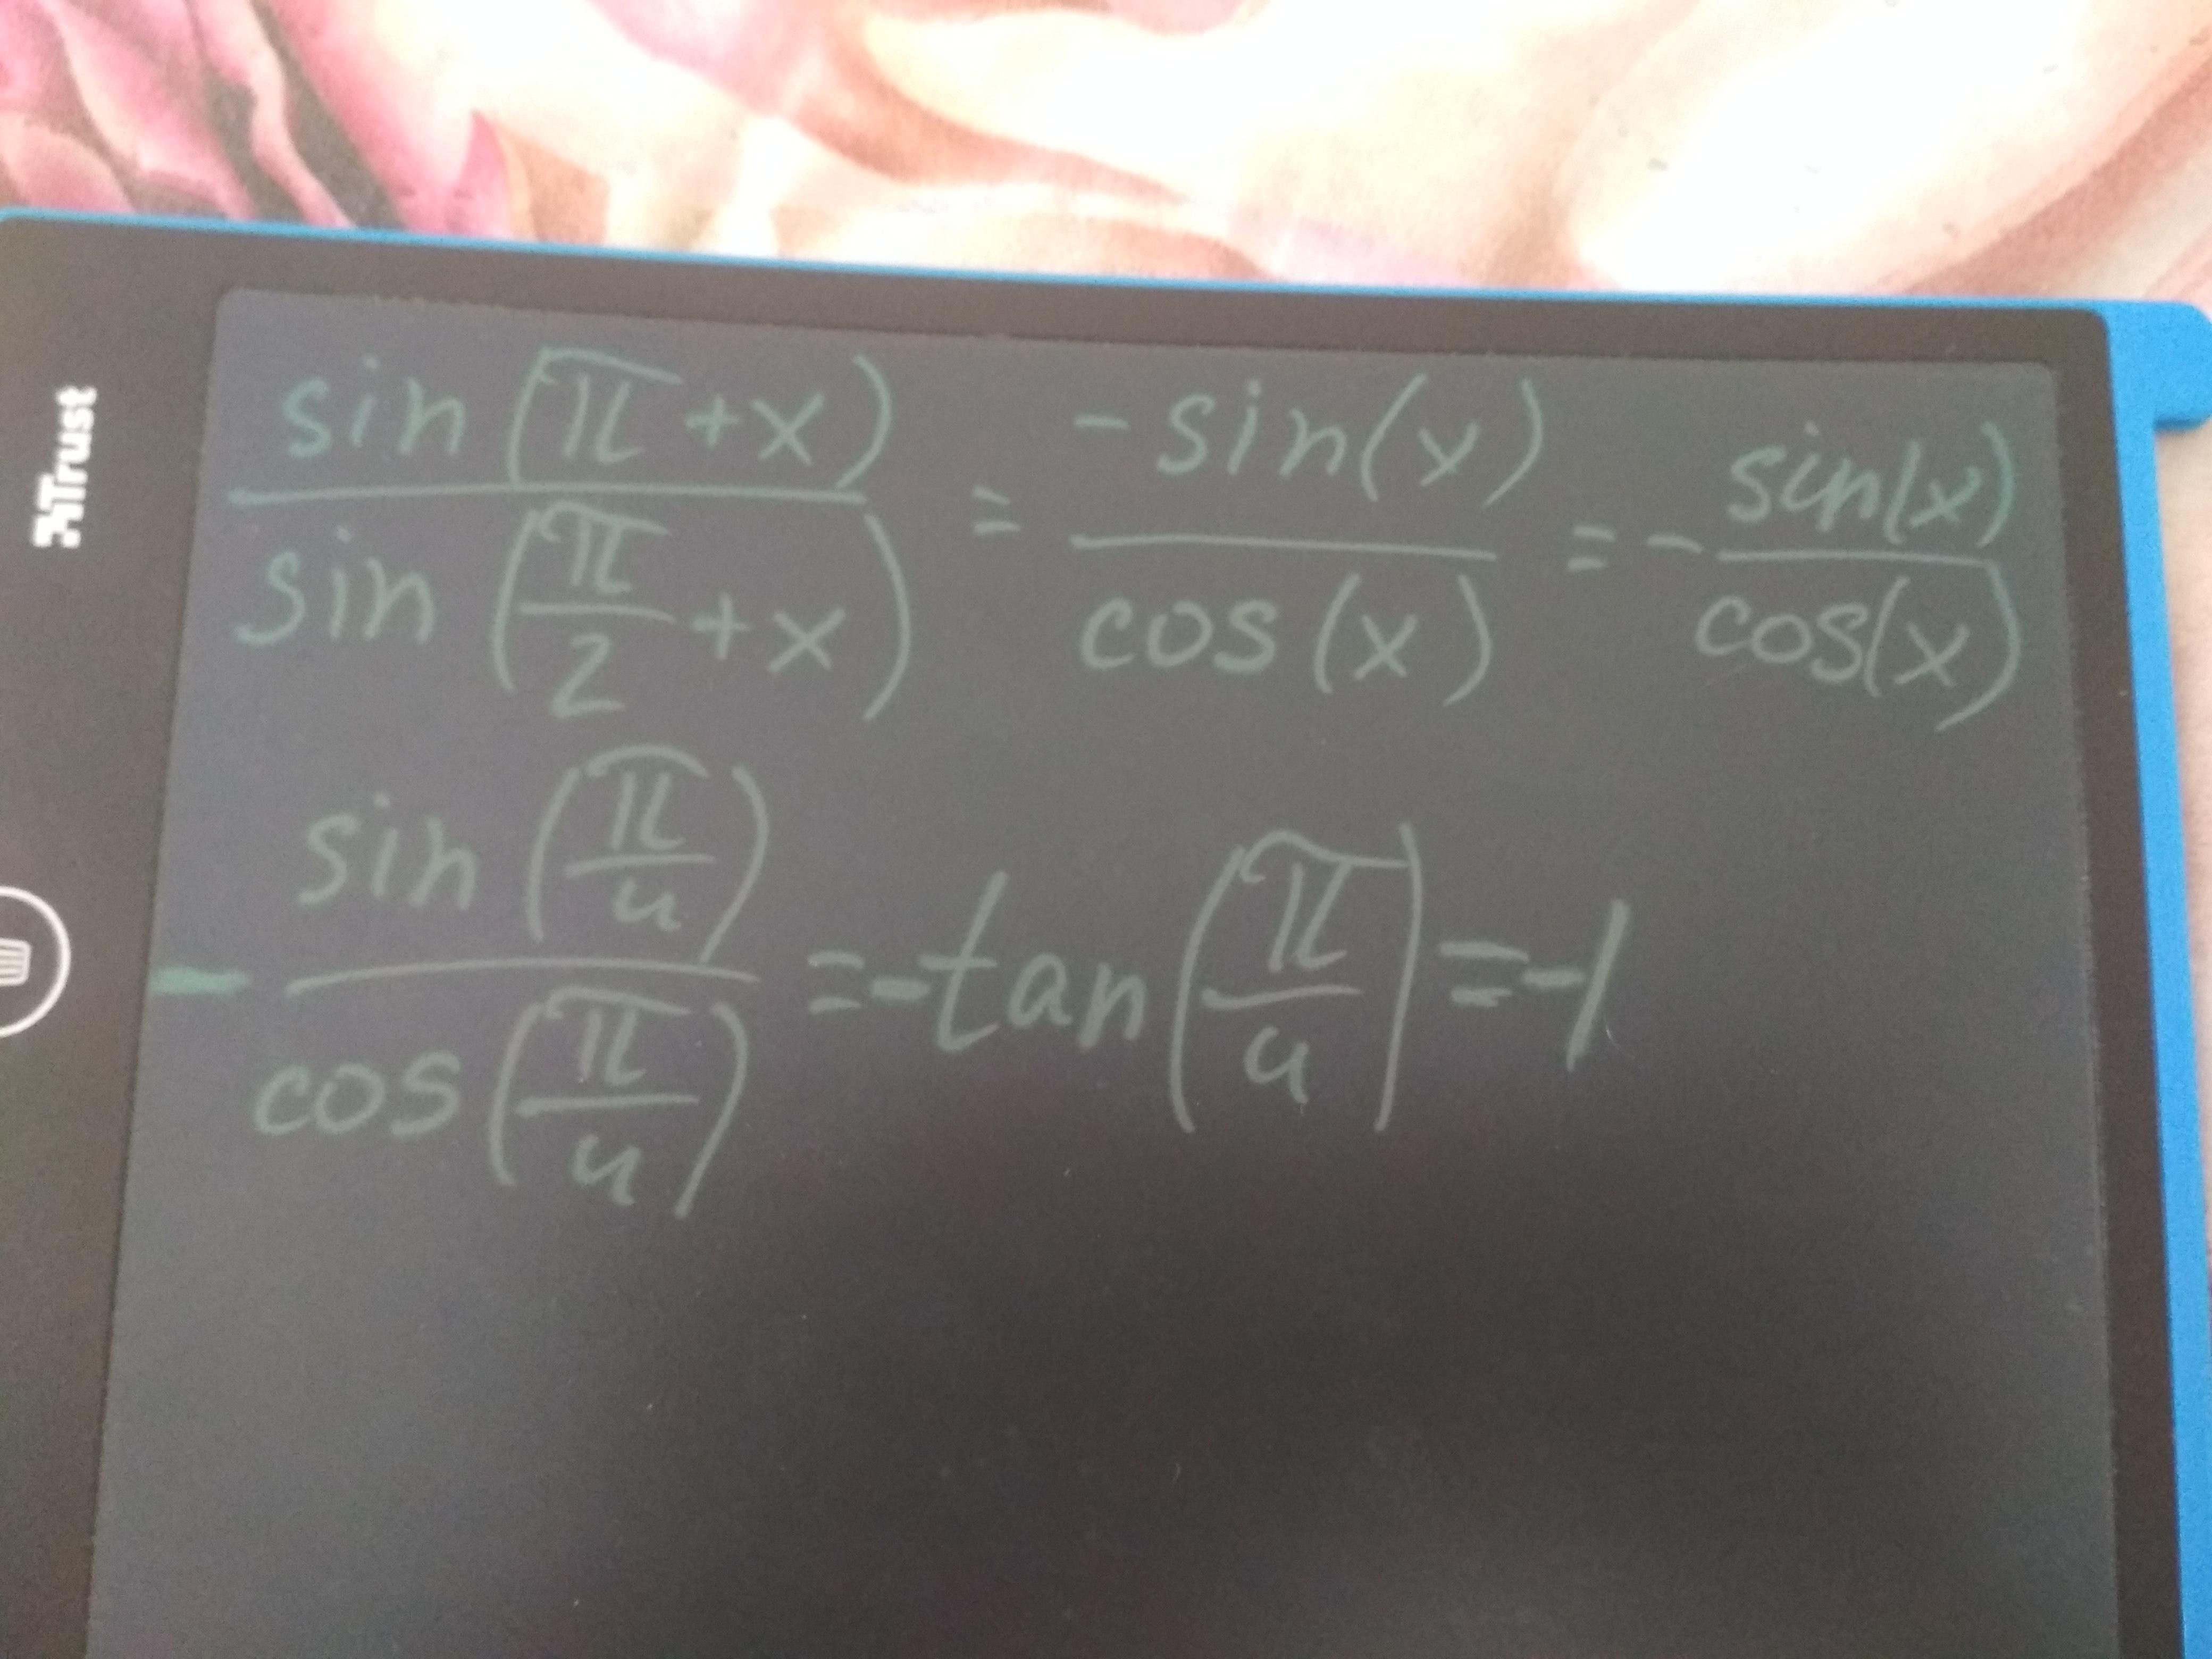 Trust
sin(π+x) / sin(π/2+x) = -sin(x) / cos(x) = - sin(x) / cos(x)
- sin(π/4) / cos(π/4) = -tan(π/4) = -1